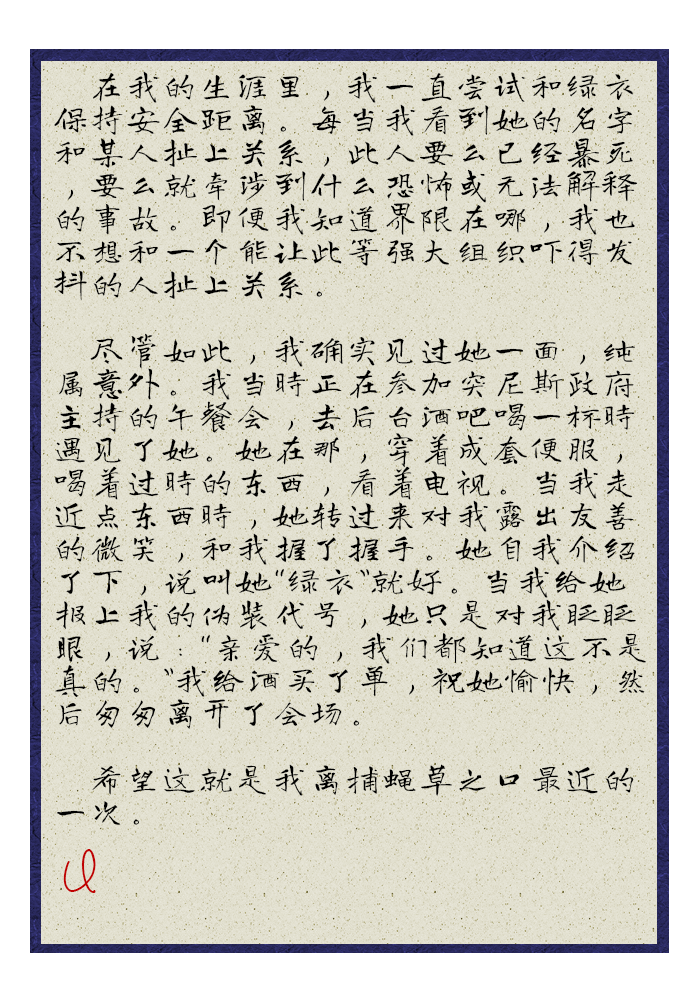 在我的生涯里，我一直尝试和绿衣
保持安全距离。每当我看到她的名字
和某人扯上关系，此人要么已经暴死
，要么就牵涉到什么恐怖或无法解释
的事故。即便我知道界限在哪，我也
不想和一个能让此等强大组织吓得发
抖的人扯上关系。
尽管如此，我确实见过她一面，纯
属意外。我当時正在参加突尼斯政府
主持的午餐会，去后台酒吧喝一杯時
遇见了她。她在那，穿着成套便服，
喝着过時的东西，看着电视。当我走
近点东西時，她转过来对我露出友善
的微笑，和我握了握手。她自我介绍
了下，说叫她“绿衣”就好。当我给她
报上我的伪装代号，她只是对我眨眨
眼，说：“亲爱的，我们都知道这不是
真的。”我给酒买了单，祝她愉快，然
后匆匆离开了会场。
希望这就是我离捕蝇草之口最近的
一次。
U